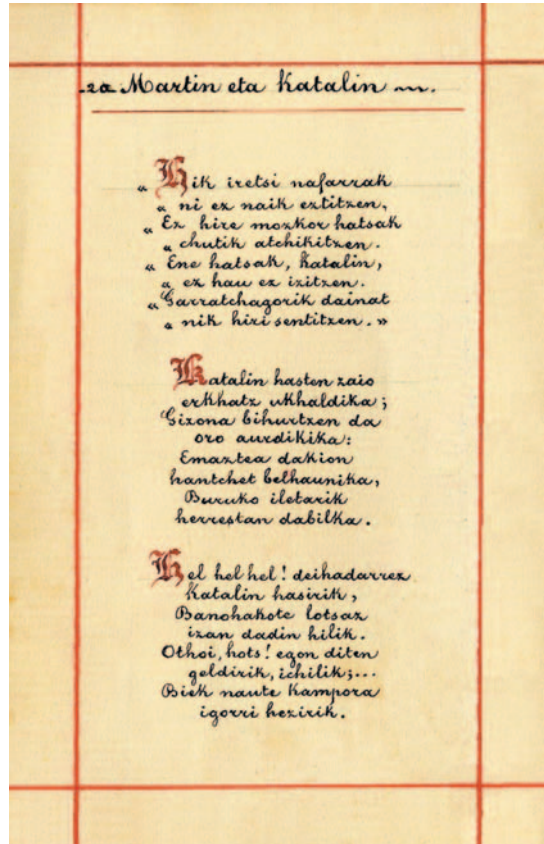 Martin eta Katalin
« Hik iretsi nafarrak
« ni ez naik eztitzen,
« Ez hire mozkor hatsak
« chutik atchikitzen.
« Ene hatsak, Katalin,
« ez hau ez izitzen.
« Garratchagorik dainat
« nik hiri sentitzen. »
Katalin hasten zaio
erkhatz ukhaldika ;
Gizona bihurtzen da
oro aurdikika :
Emaztea dakion
hantchet belhaunika,
Buruko iletarik
herrestan dabilka .
Hel hel hel ! deihadarrez
Katalin hasirik ,
Banohakote lotsaz
izan dadin hilik .
Othoi, hots ! egon diten
geldirik, ichilik ; ...
Biek naute Kampora
igorri hezirik .